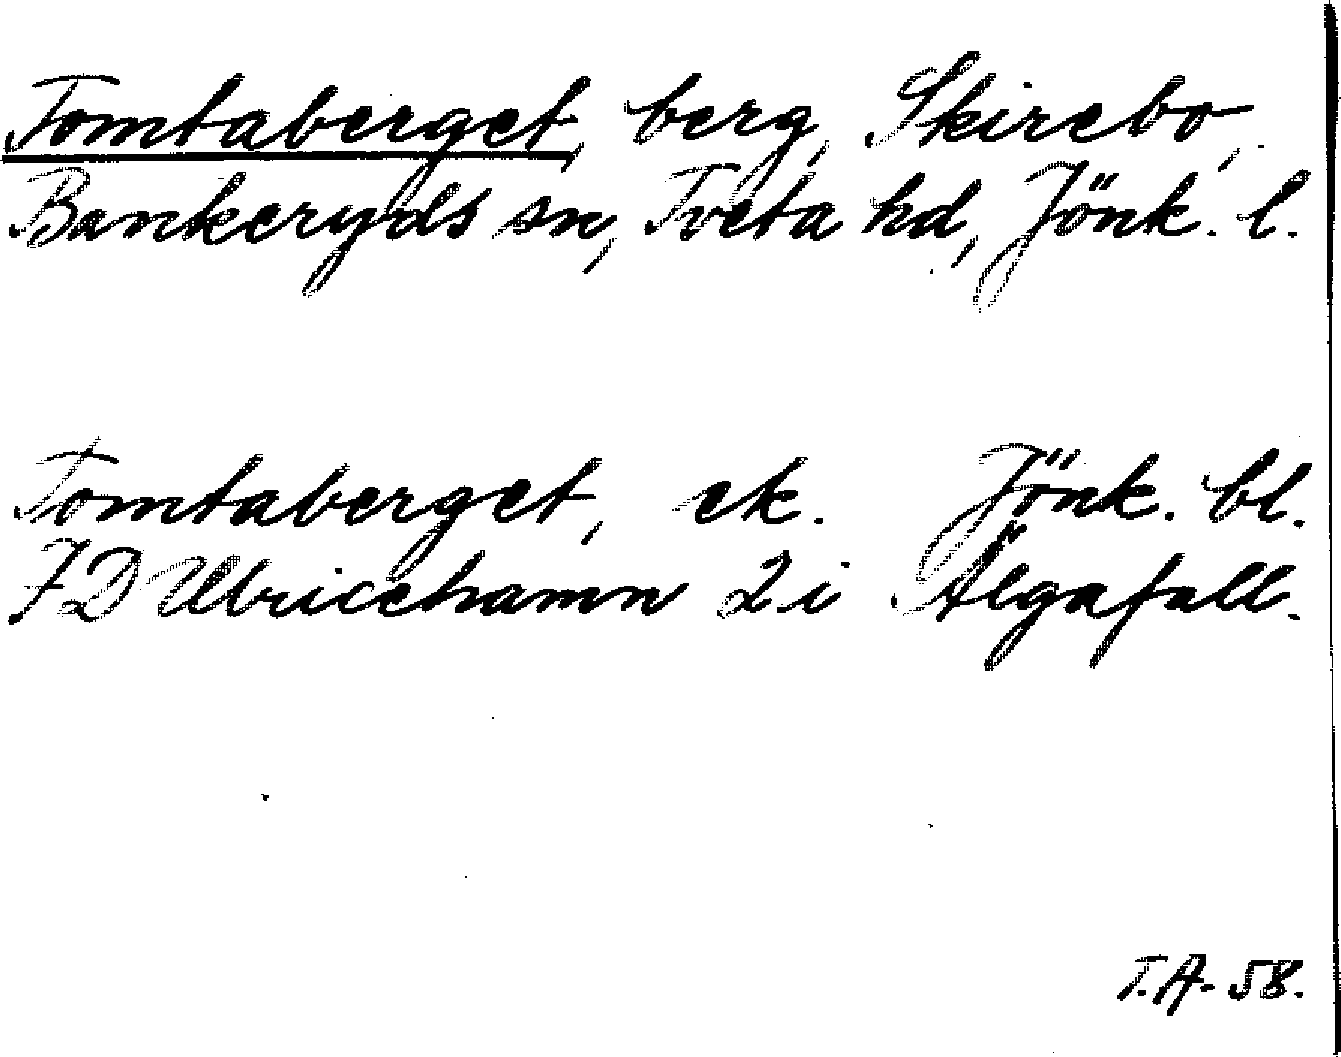 Tomtaberget, berg, Skirebo,
Bankeryds sn, Tveta hd, Jönk. l.
Tomtaberget, ek. Jönk. bl.
7D Ulricehamn 2 i Älgafall.
T.A. 58.